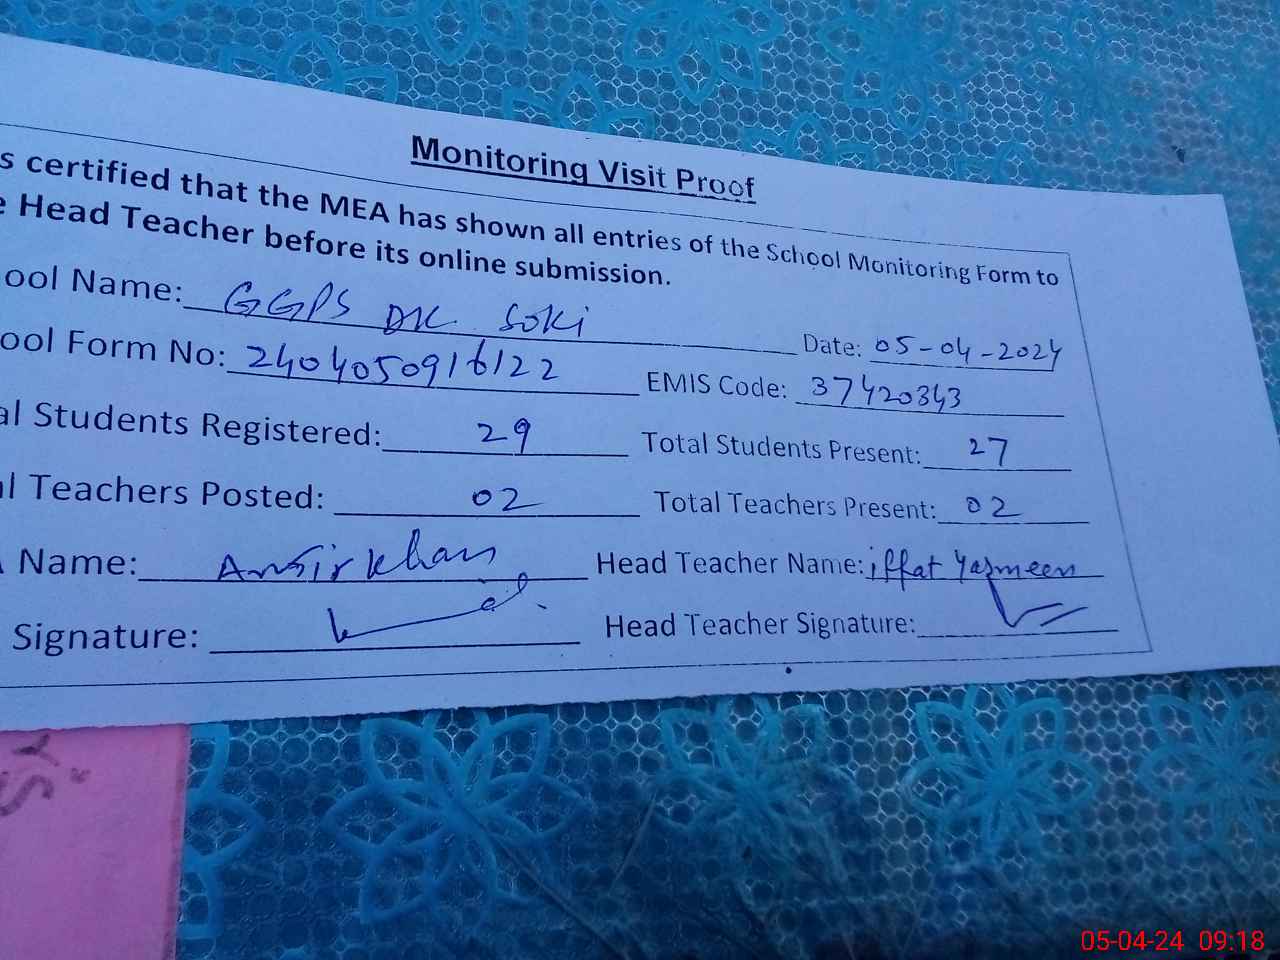 Monitoring Visit Proof
s certified that the MEA has shown all entries of the School Monitoring Form to
e Head Teacher before its online submission.
ool Name: GGPS DK Soki Date: 05-04-2024
ool Form No: 2404050916122 EMIS Code: 37420343
al Students Registered: 29 Total Students Present: 27
al Teachers Posted: 02 Total Teachers Present: 02
A Name: Ansir Khan Head Teacher Name: iffat Yasmeen
Signature: Head Teacher Signature:
05-04-24 09:18